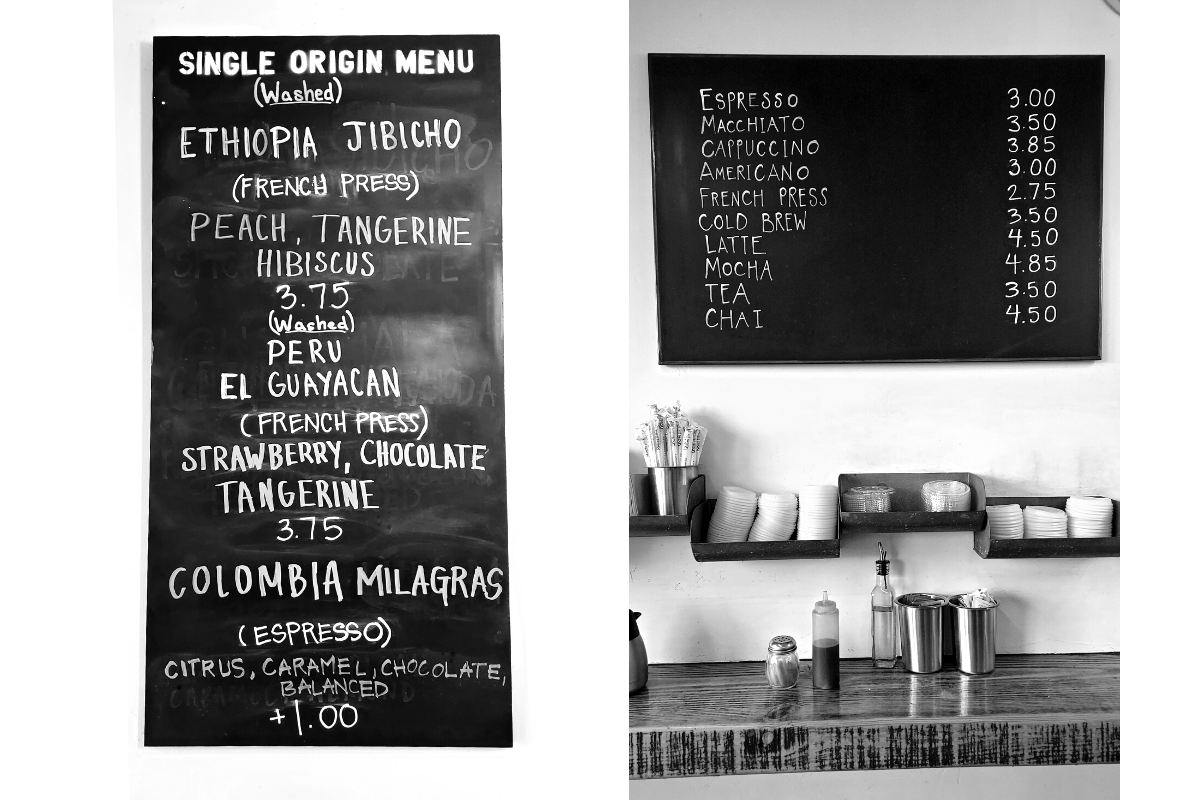 SINGLE ORIGIN MENU
(Washed)
ETHIOPIA JIBICHO
(FRENCH PRESS)
PEACH, TANGERINE
HIBISCUS
3.75
(Washed)
PERU
EL GUAYACAN
(FRENCH PRESS)
STRAWBERRY, CHOCOLATE
TANGERINE
3.75
COLOMBIA MILAGRAS
(ESPRESSO)
CITRUS, CARAMEL, CHOCOLATE,
BALANCED
+1.00
ESPRESSO 3.00
MACCHIATO 3.50
CAPPUCCINO 3.85
AMERICANO 3.00
FRENCH PRESS 2.75
COLD BREW 3.50
LATTE 4.50
MOCHA 4.85
TEA 3.50
CHAI 4.50